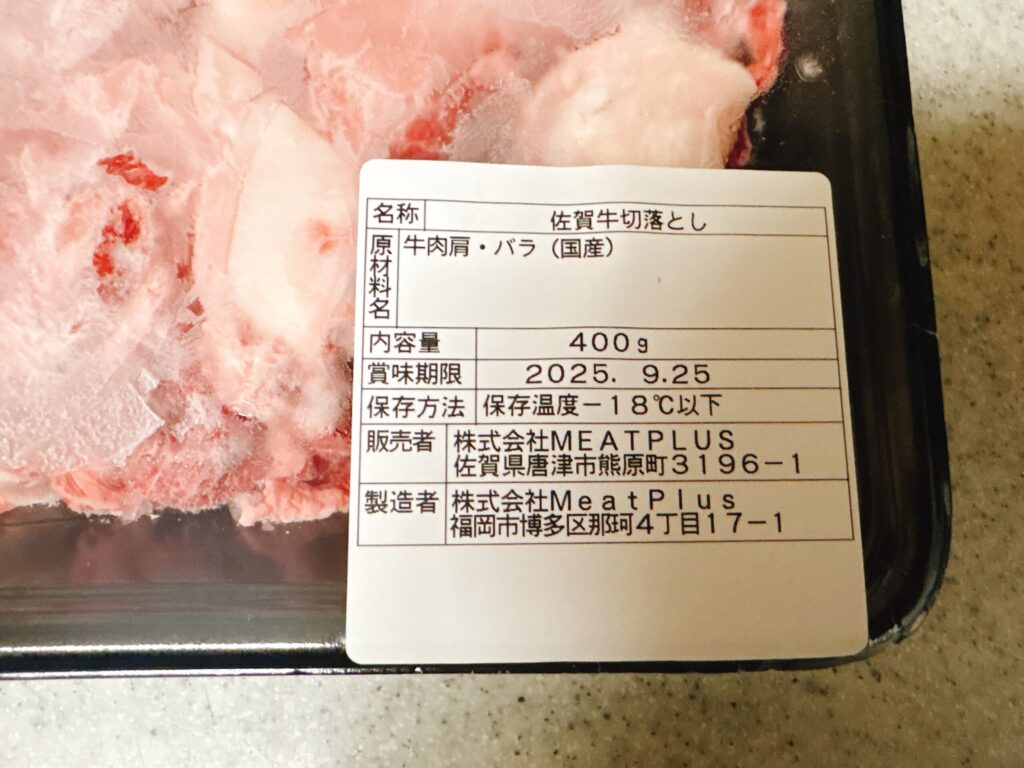 名称 佐賀牛切落とし
原材料名 牛肉肩・バラ（国産）
内容量 400g
賞味期限 2025. 9.25
保存方法 保存温度－18℃以下
販売者 株式会社MEATPLUS
佐賀県唐津市熊原町3196－1
製造者 株式会社MeatPlus
福岡市博多区那珂4丁目17－1